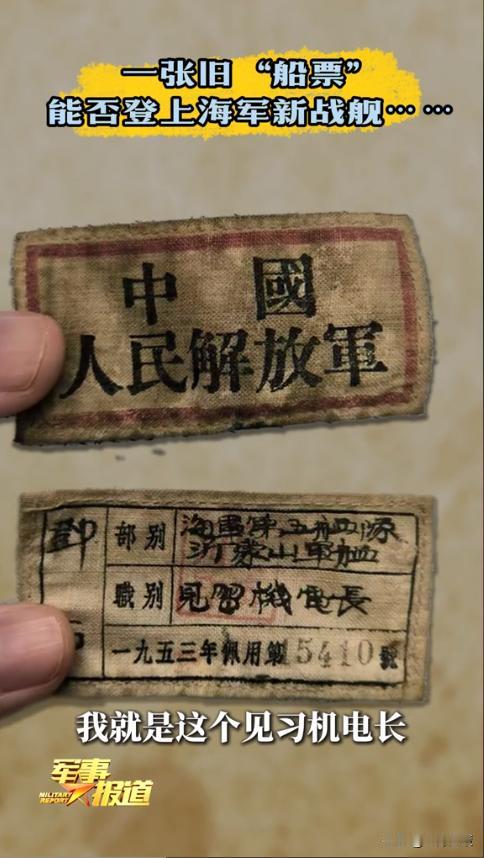 一张旧“船票”
能否登上海军新战舰……
中國
人民解放軍
鄧
部别
海軍第五舰隊
沂蒙山軍舰
職别
見習機電長
一九五三年佩用第15410號
我就是这个见习机电长
军事
MILITARY
REPORT
报道